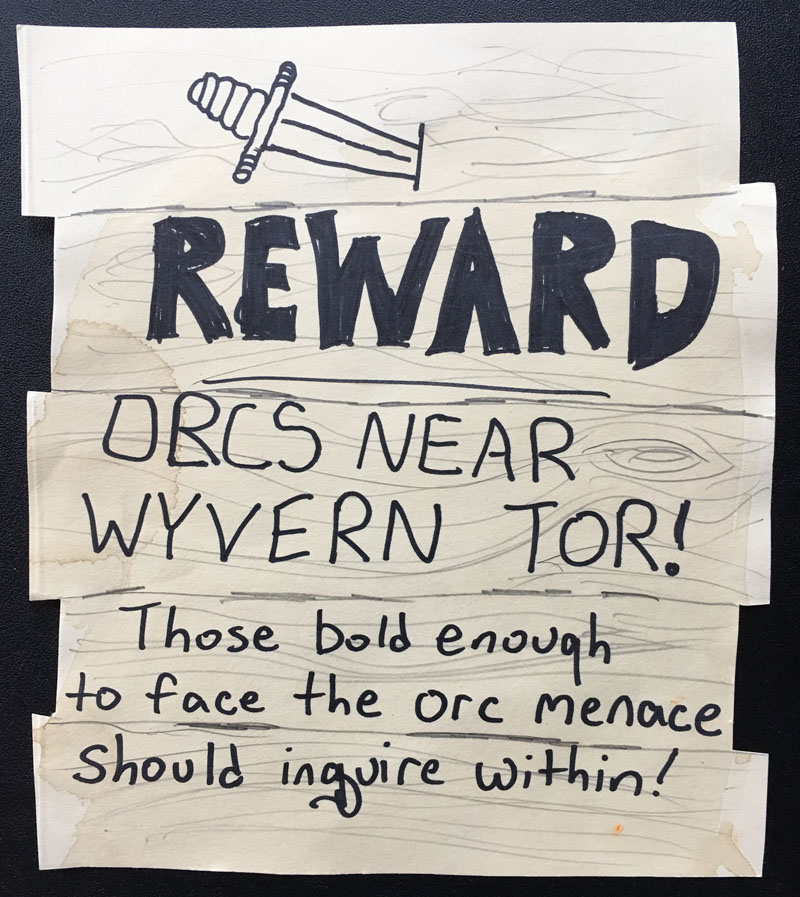 REWARD
ORCS NEAR
WYVERN TOR!
Those bold enough
to face the orc menace
Should inquire within!